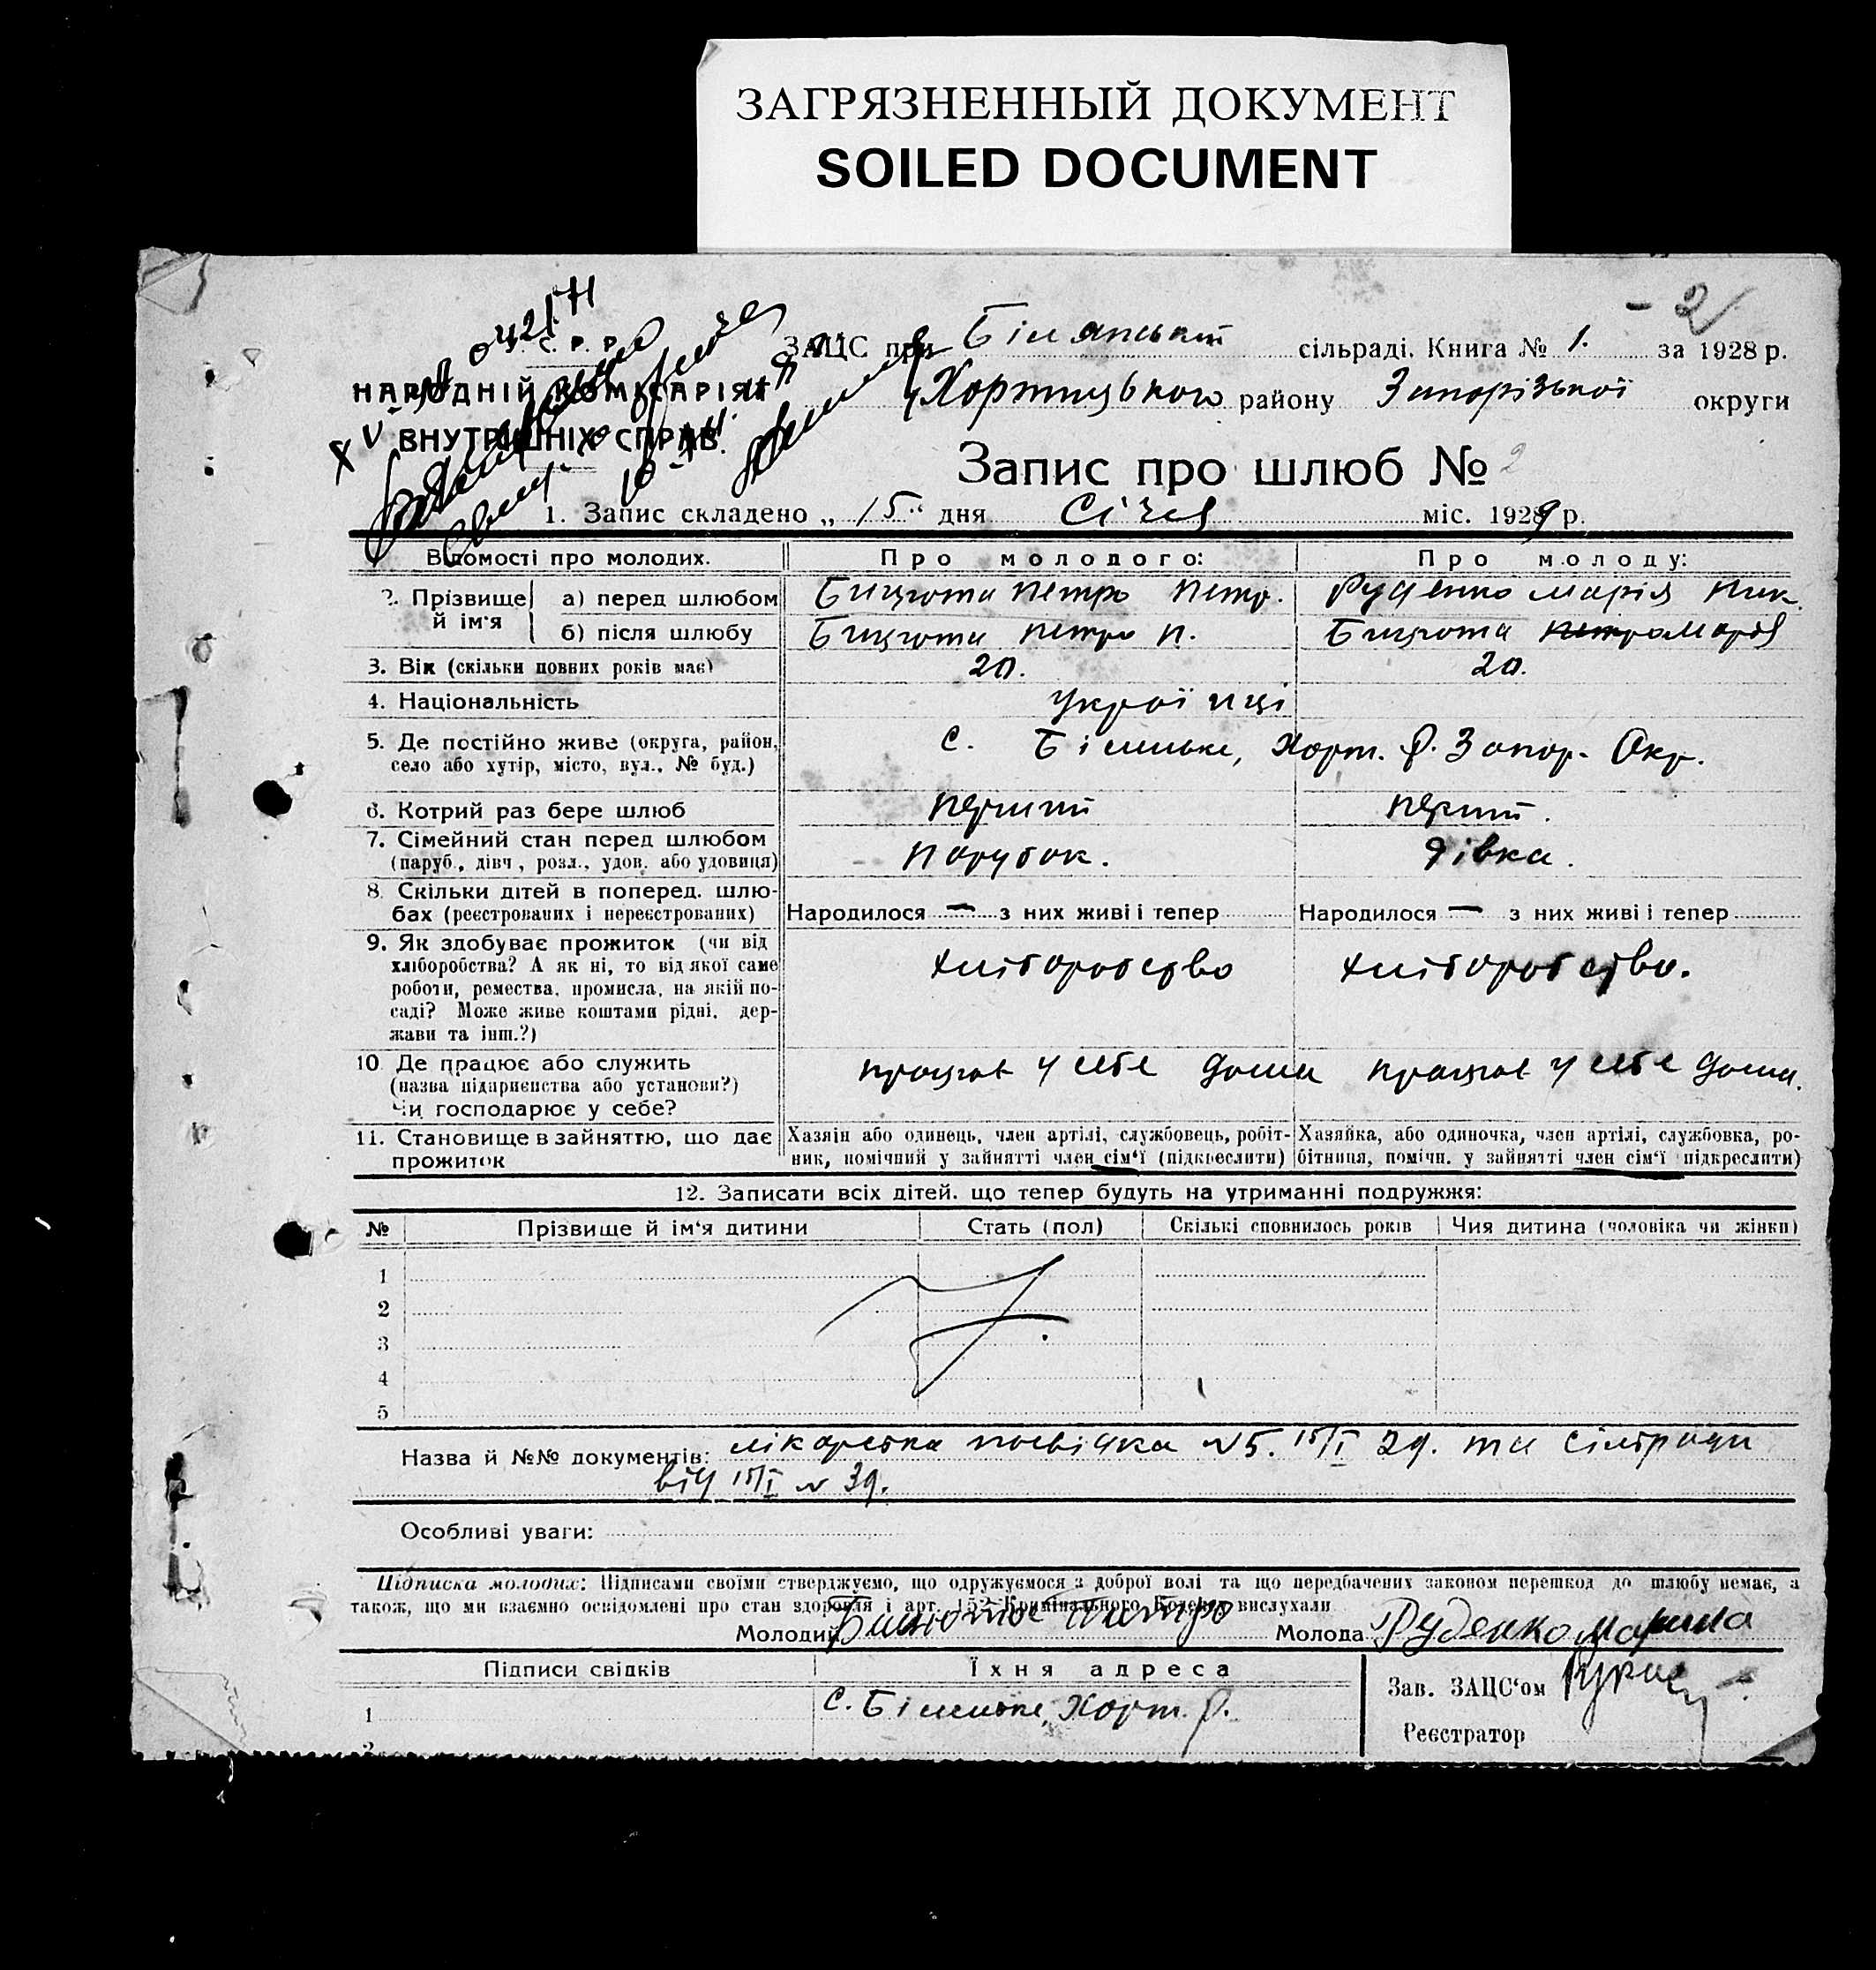 ЗАГРЯЗНЕННЫЙ ДОКУМЕНТ
SOILED DOCUMENT
- 2
С. Р. Р.
НАРОДНІЙ КОМІСАРІЯТ
ВНУТРІШНІХ СПРАВ.
ЗАЦС при сільраді. Книга № 1. за 1928 р.
Хортицького району Запорізької округи
Запис про шлюб № 2
1. Запис складено „ 15 “ дня Січня міс. 1929 р.
Відомості про молодих. Про молодого: Про молоду:
2. Прізвище й ім'я а) перед шлюбом Петро Петр. Руденко Марія Ник.
б) після шлюбу Петро П. Петро Марія
3. Вік (скільки повних років має) 20. 20.
4. Національність Українці
5. Де постійно живе (округа, район, село або хутір, місто, вул., № буд.) с. Хорт. р. Запор. Окр.
6. Котрий раз бере шлюб перший перший.
7. Сімейний стан перед шлюбом (паруб., дівч., розл., удов. або удовиця) парубок. дівка.
8. Скільки дітей в поперед. шлюбах (реєстрованих і нереєстрованих) Народилося — з них живі і тепер Народилося — з них живі і тепер
9. Як здобуває прожиток (чи від хліборобства? А як ні, то від якої саме роботи, ремества, промисла, на якій посаді? Може живе коштами рідні, держави та інш.?) хліборобство хліборобство.
10 Де працює або служить (назва підприємства або установи?) Чи господарює у себе? працює у себе дома працює у себе дома.
11. Становище в зайняттю, що дає прожиток Хазяїн або одинець, член артілі, службовець, робітник, помічний у зайнятті член сім'ї (підкреслити) Хазяйка, або одиночка, член артілі, службовка, робітниця, помічн. у зайнятті член сім'ї підкреслити)
12. Записати всіх дітей. що тепер будуть на утриманні подружжя:
№ Прізвище й ім'я дитини Стать (пол) Скількі сповнилось років Чия дитина (чоловіка чи жінки)
1
2
3
4
5
Назва й №№ документів: лікарська посвідка №5. 15/I 29. та Сільради
від 15/I № 39.
Особливі уваги:
Підписка молодих: Підписами своїми стверджуємо, що одружуємося з доброї волі та що передбачених законом перешкод до шлюбу немає, а
також, що ми взаємно освідомлені про стан здоровля і арт. 152 Кримінального Кодексу вислухали
Молодий Молода Руденко
Підписи свідків Їхня адреса Зав. ЗАЦС'ом
1 с. Хорт. р.
Реєстратор
2